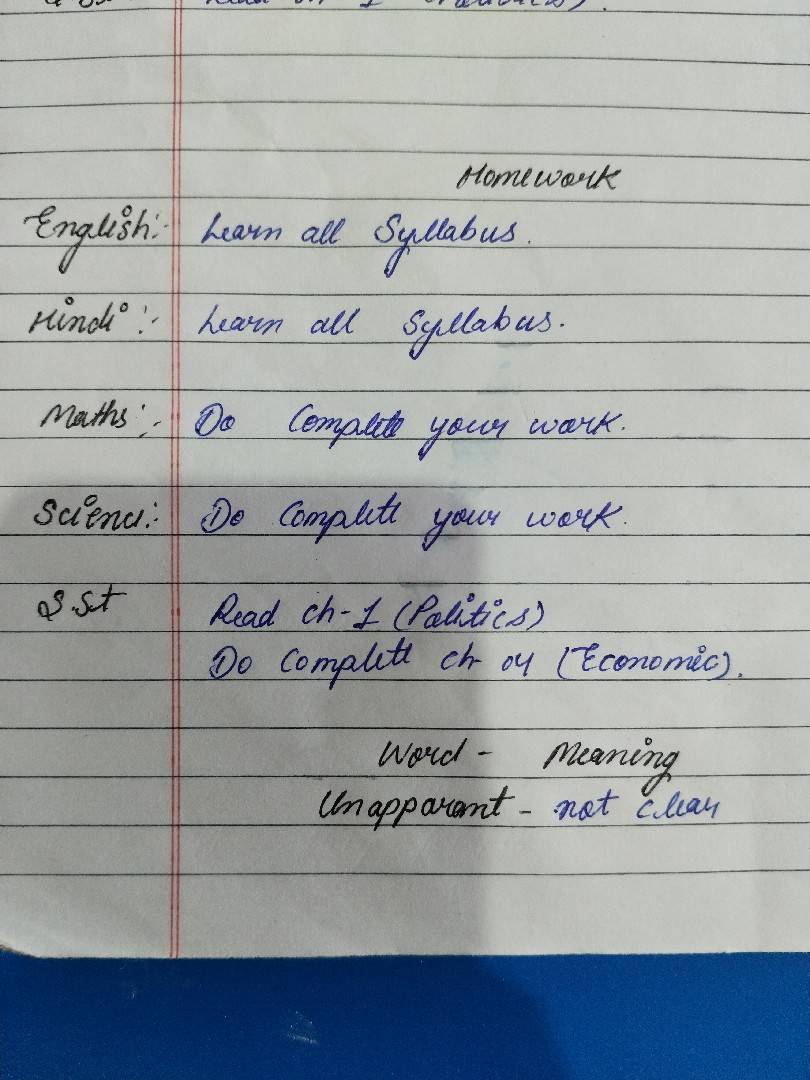 Read ch-1 (Politics).
Homework
English:- Learn all Syllabus.
Hindi:- Learn all Syllabus.
Maths:- Do Complete your work.
Science:- Do Complete your work.
S.St Read ch-1 (Politics)
Do Complete ch 04 (Economic).
Word - Meaning
Unapparant - not clear